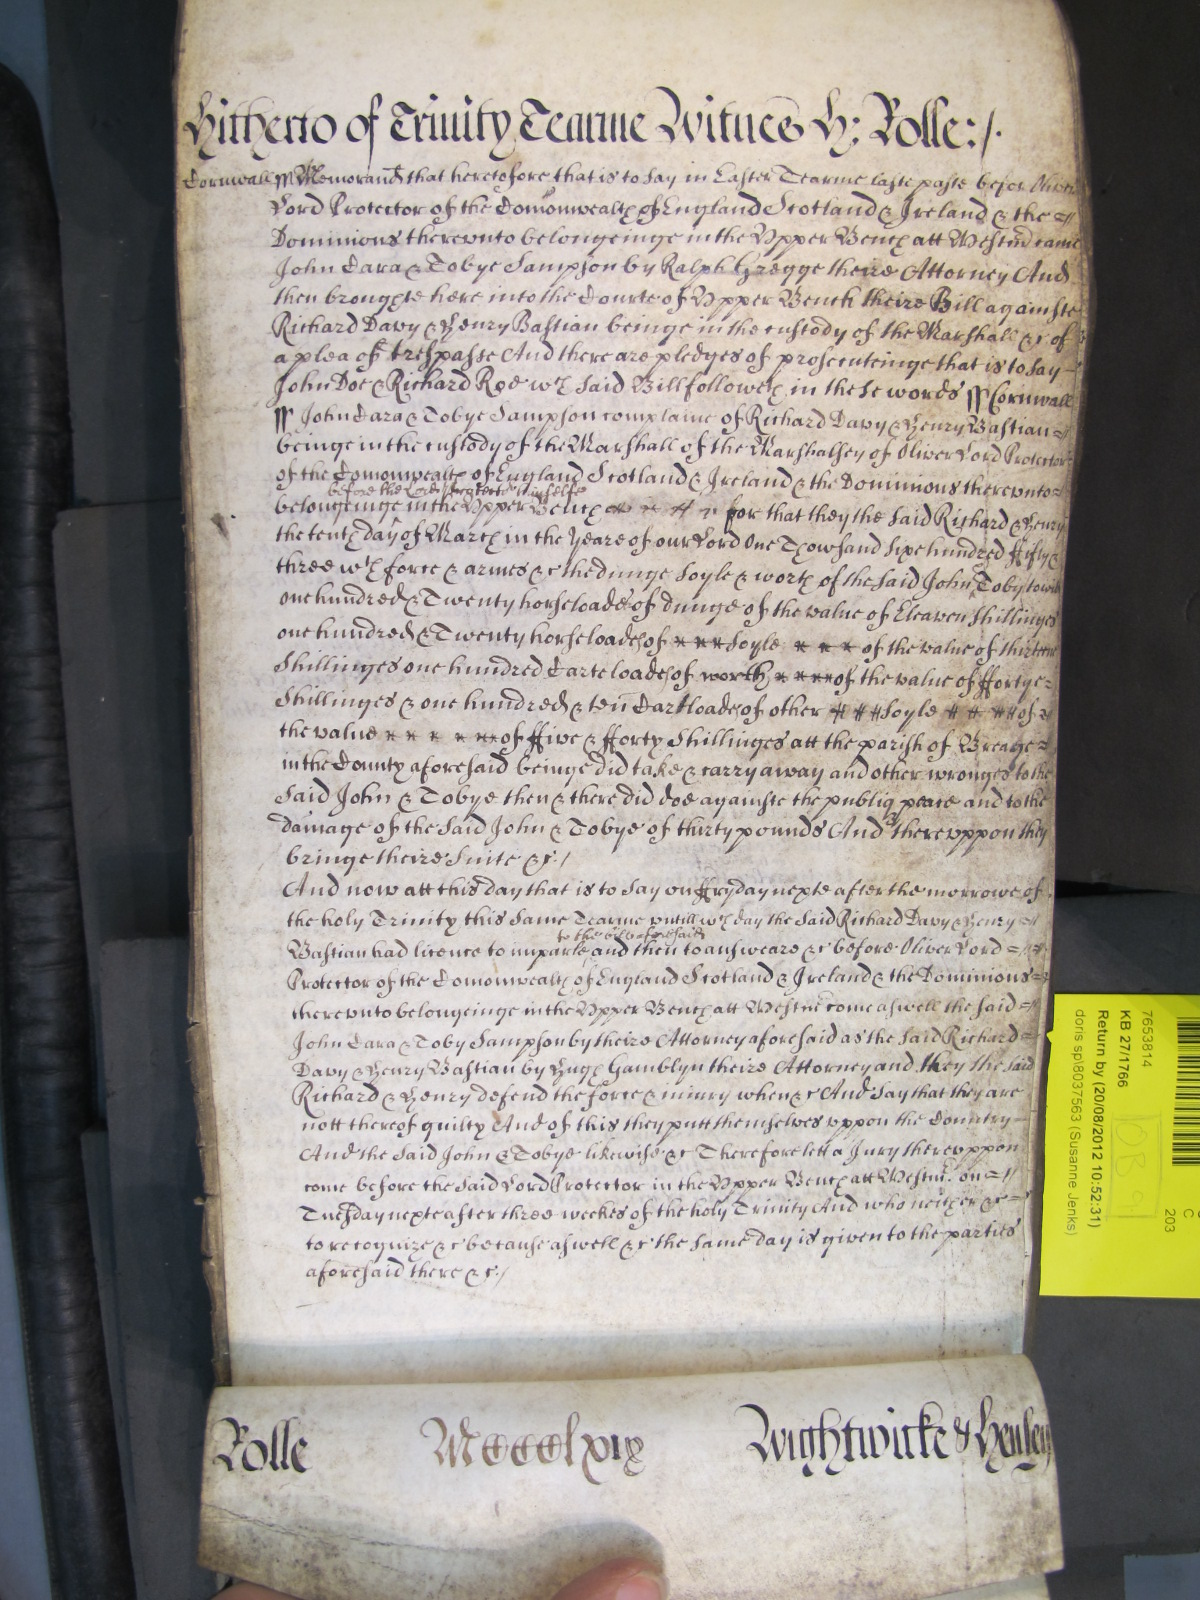 Hitherto of Trinity Tearme Witnes H: Rolle:/.
Cornwall ss Memorand that heretofore that is to say in Easter Tearme laste paste before Oliver
Lord Protector of the Comonwealth of England Scotland & Ireland & the =//
Dominions thereunto belongeinge in the Upper Bench att Westm came
John Cara & Tobye Sampson by Ralph Gregge theire Attorney And
then broughte here into the Courte of Upper Bench theire Bill againste
Richard Davy & Henry Bastian beinge in the custody of the Marshall &c of
a plea of trespasse And there are pledges of prosecuteinge that is to say
John Doe & Richard Roe wch said Bill followeth in these words ss Cornwall
ss John Cara & Tobye Sampson complaine of Richard Davy & Henry Bastian =//
beinge in the custody of the Marshall of the Marshalsey of Oliver Lord Protector
of the Comonwealth of England Scotland & Ireland & the Dominions thereunto =
before the Lord Protector himselfe
belongeinge in the Upper Bench for that they the said Richard & Henry
the tenth day of March in the yeare of our Lord One Thowsand sixe hundred ffifty &
three wth force & armes &c the dunge soyle & worth of the said John Toby
one hundred & Twenty horseloades of dunge of the value of Eleaven shillinges
one hundred & Twenty horseloades of soyle of the value of thirteene
shillinges one hundred Carteloades of worth of the value of ffortye =
shillinges & one hundred & tenn Cartloades of other soyle of
the value of ffive & fforty shillinges att the parish of Breage =
in the County aforesaid beinge did take & carry away and other wronges to the
said John & Tobye then & there did doe againste the publiq peace and to the
damage of the said John & Tobye of thirty pounds And thereuppon they
bringe theire suite &c./
And now att this day that is to say on ffryday nexte after the morrowe of
the holy Trinity this same Tearme untill wch day the said Richard Davy & Henry =//
to the bill aforesaid
Bastian had licence to imparle and then to answeare &c before Oliver Lord =//
Protector of the Comonwealth of England Scotland & Ireland & the Dominions =
thereunto belongeinge in the Upper Bench att Westm come aswell the said =//
John Cara & Toby Sampson by theire Attorney aforesaid as the said Richard =
Davy & Henry Bastian by Hugh Gamblyn theire Attorney and they the said
Richard & Henry defend the force & iniury when &c And say that they are
nott thereof guilty And of this they putt themselves uppon the Country
And the said John & Tobye likewise &c Therefore lett a Jury thereuppon
come before the said Lord Protector in the Upper Bench att Westm: on =//
Tuesday nexte after three weekes of the holy Trinity And who neither &c =
to recognize &c because aswell &c the same day is given to the parties
aforesaid there &c./
Rolle MCCCClxix Wightwicke & Henley
7653814
KB 27/1766
Return by (20/08/2012 10:52:31)
doris sp\8037563 (Susanne Jenks)
C
203